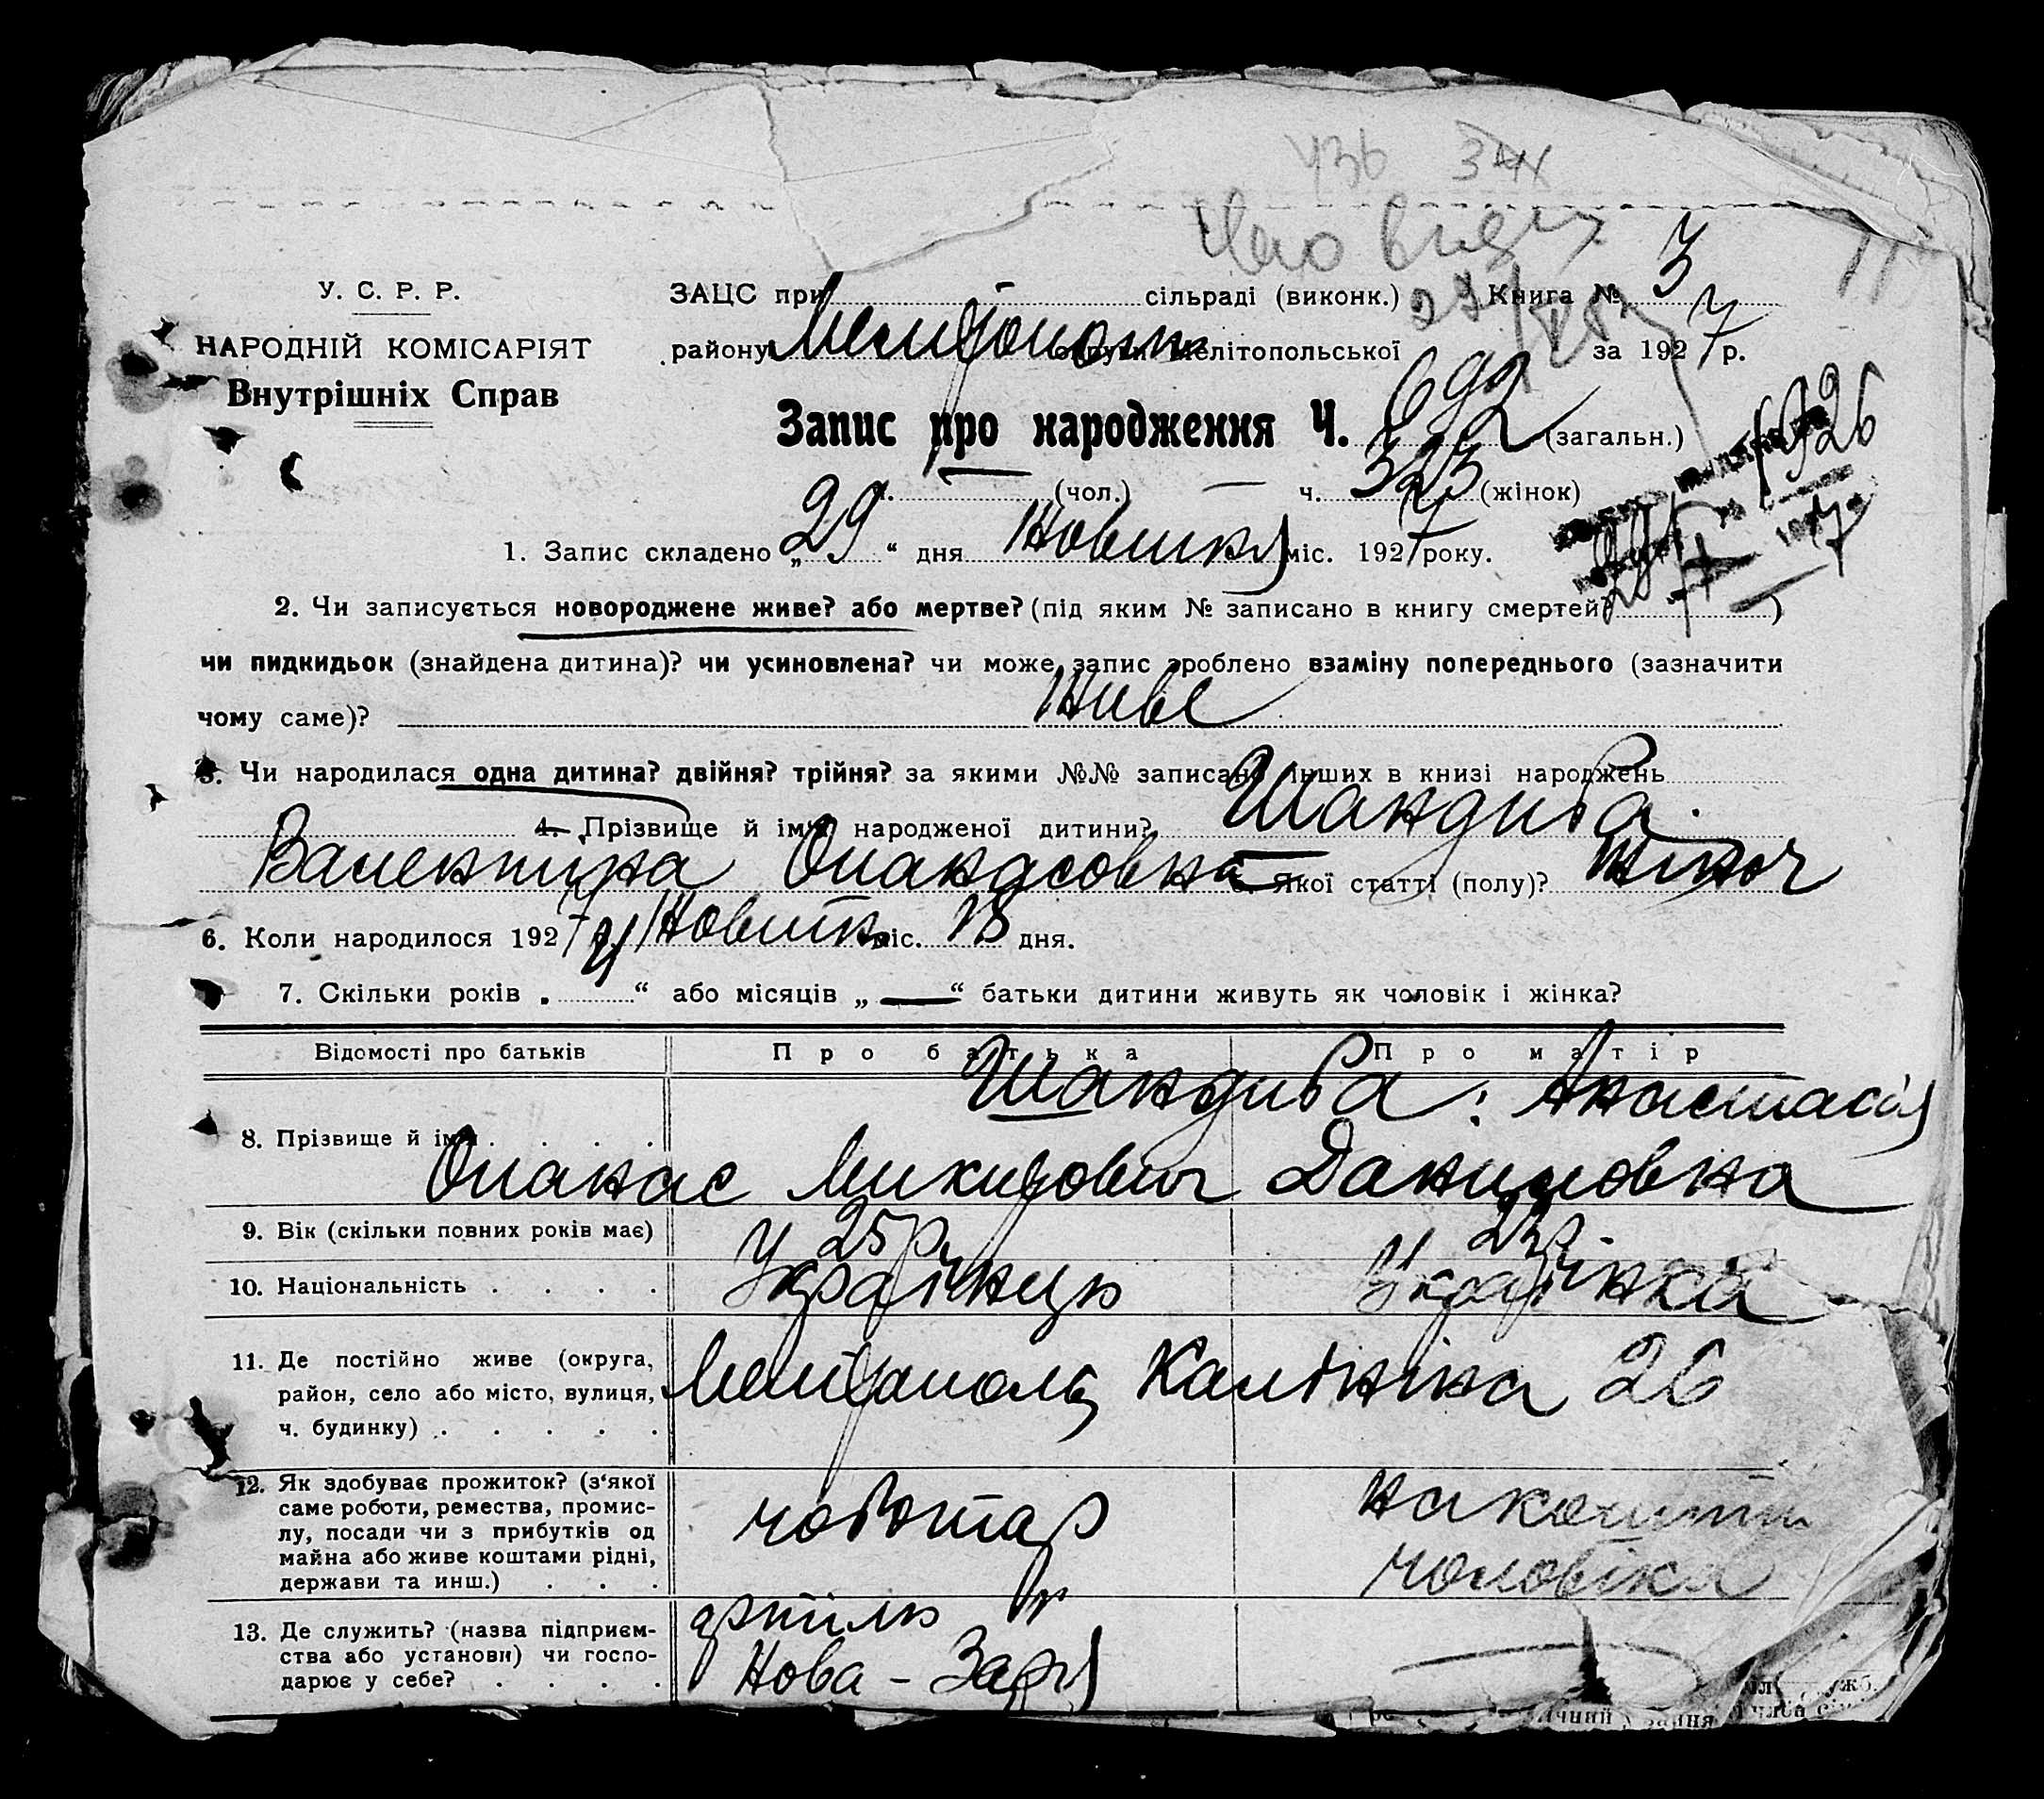 У. С. Р. Р.
НАРОДНІЙ КОМІСАРІЯТ
Внутрішніх Справ
ЗАЦС при сільраді (виконк.) Книга № 3
району Мелітополь округи Мелітопольської за 1927 р.
Запис про народження Ч. 692 (загальн.)
ч. (чол.) — ч. 323 (жінок)
1. Запис складено „29“ дня Новитня міс. 1927 року.
2. Чи записується новороджене живе? або мертве? (під яким № записано в книгу смертей )
чи пидкидьок (знайдена дитина)? чи усиновлена? чи може запис зроблено взаміну попереднього (зазначити
чому саме)? Живе
3. Чи народилася одна дитина? двійня? трійня? за якими №№ записано інших в книзі народжень
4. Прізвище й ім'я народженої дитини? Шандиба
Валентина Опанасовна Якої статті (полу)? жіноч
6. Коли народилося 1927 р. міс. дня.
7. Скільки років „ “ або місяців „—“ батьки дитини живуть як чоловік і жінка?
Відомості про батьків Про батька Про матір
8. Прізвище й ім'я . . . . Шандиба: Анастасія
Опанас Даниловна
9. Вік (скільки повних років має) 25р. 23р.
10. Національність . . . . Українець Українка
11. Де постійно живе (округа,
район, село або місто, вулиця,
ч. будинку) . . . . . Мелітополь Калініна 26
12. Як здобуває прожиток? (з'якої
саме роботи, ремества, промис-
лу, посади чи з прибутків од
майна або живе коштами рідні,
держави та инш.) . . . чоботар на кошти
чоловіка
13. Де служить? (назва підприєм-
ства або установи) чи госпо-
дарює у себе? . . . . артіль
Нова-Заря